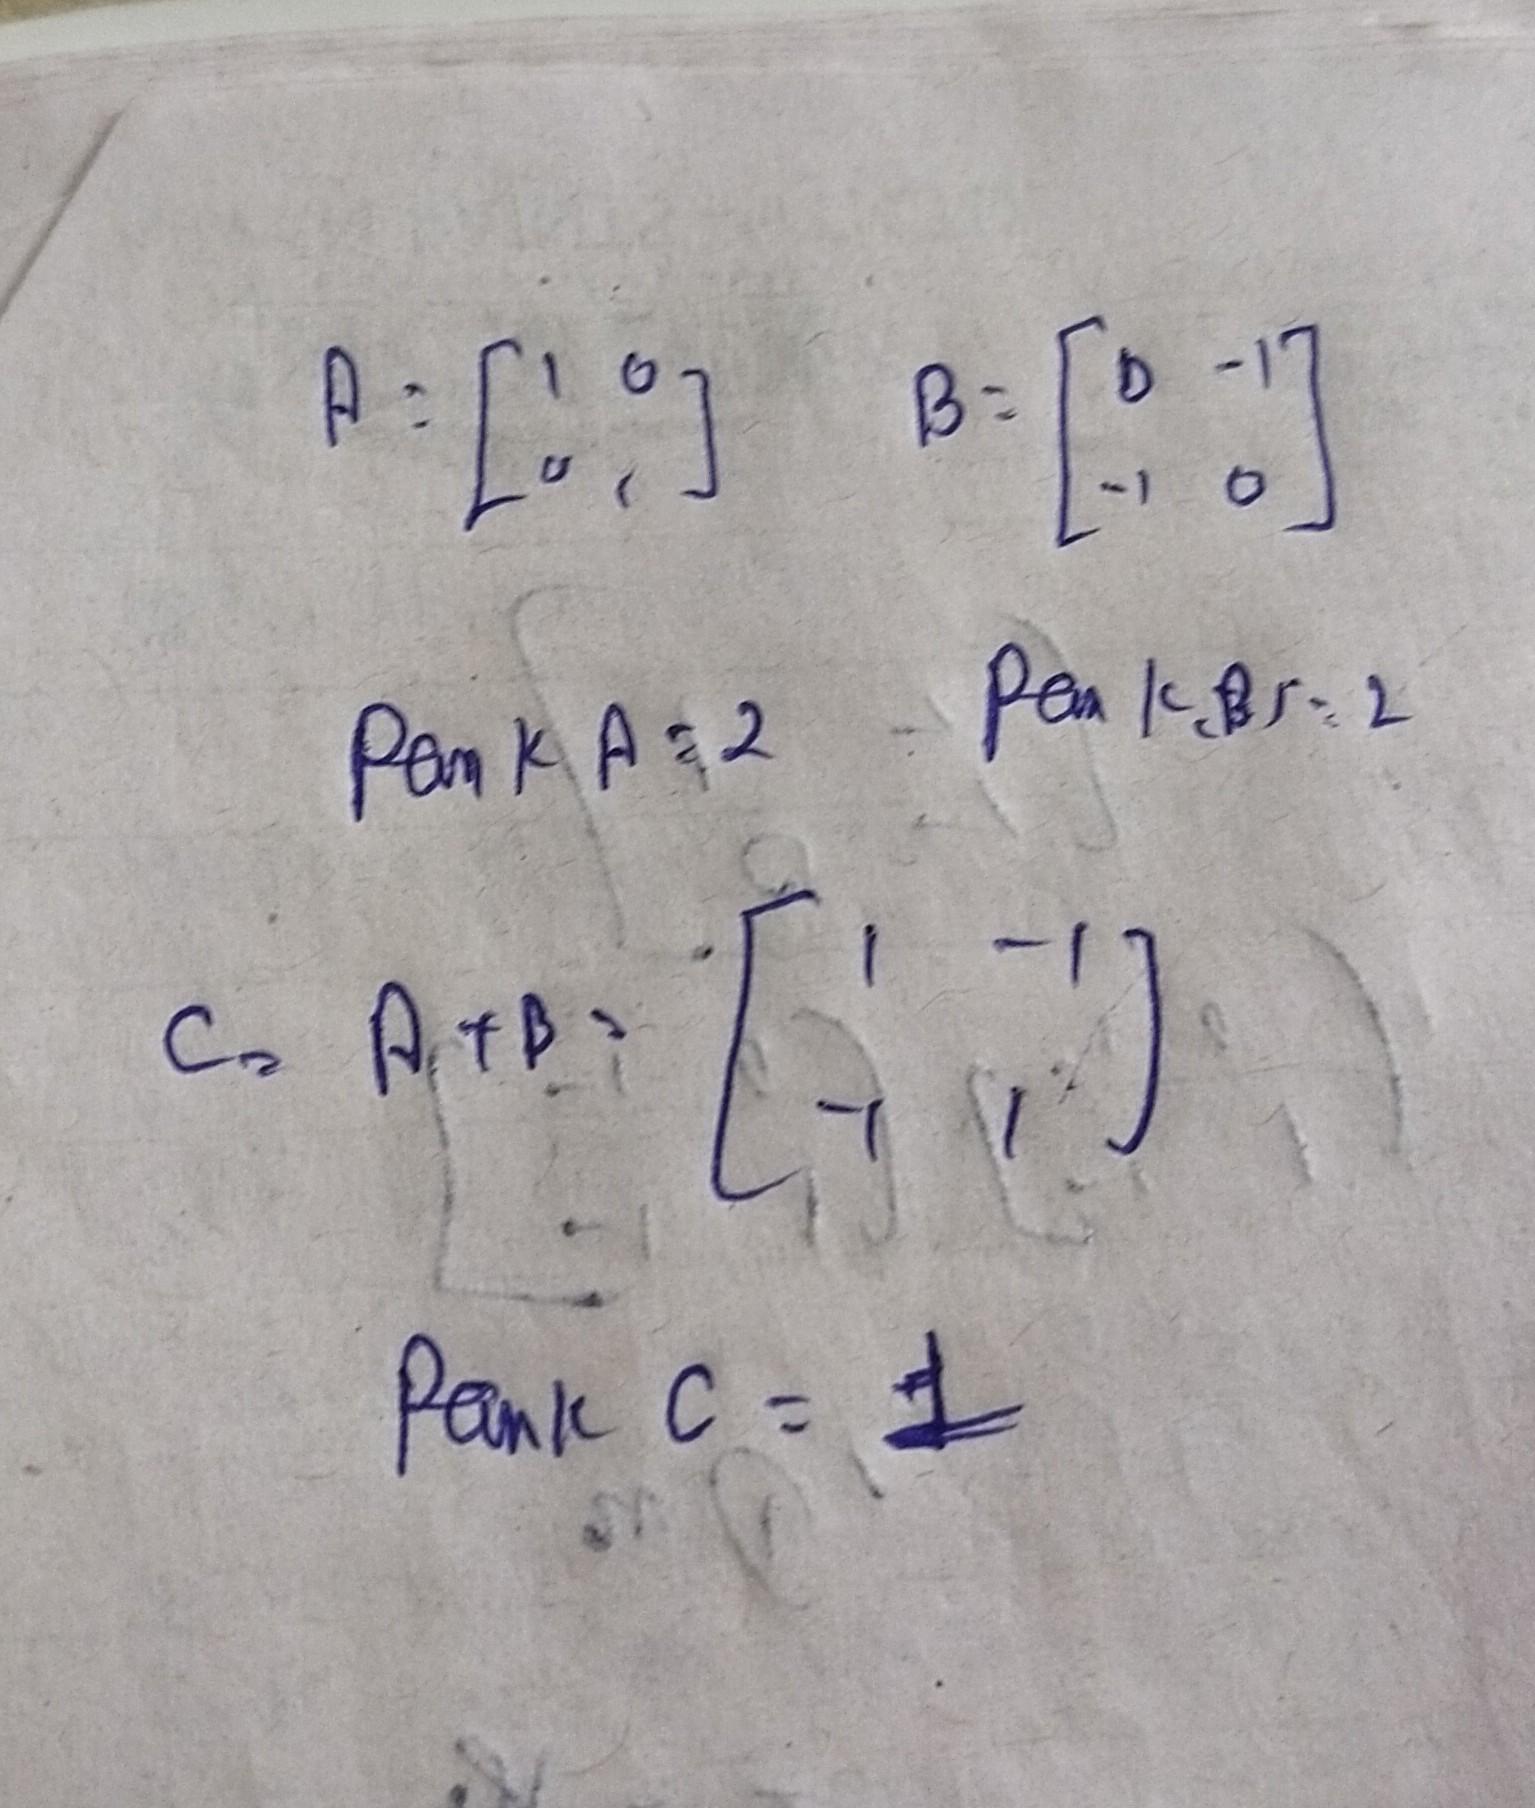 A = [1 0 B = [0 -1
0 1] -1 0]
Rank A = 2 Rank B = 2
C = A + B = [1 -1
-1 1]
Rank C = 1